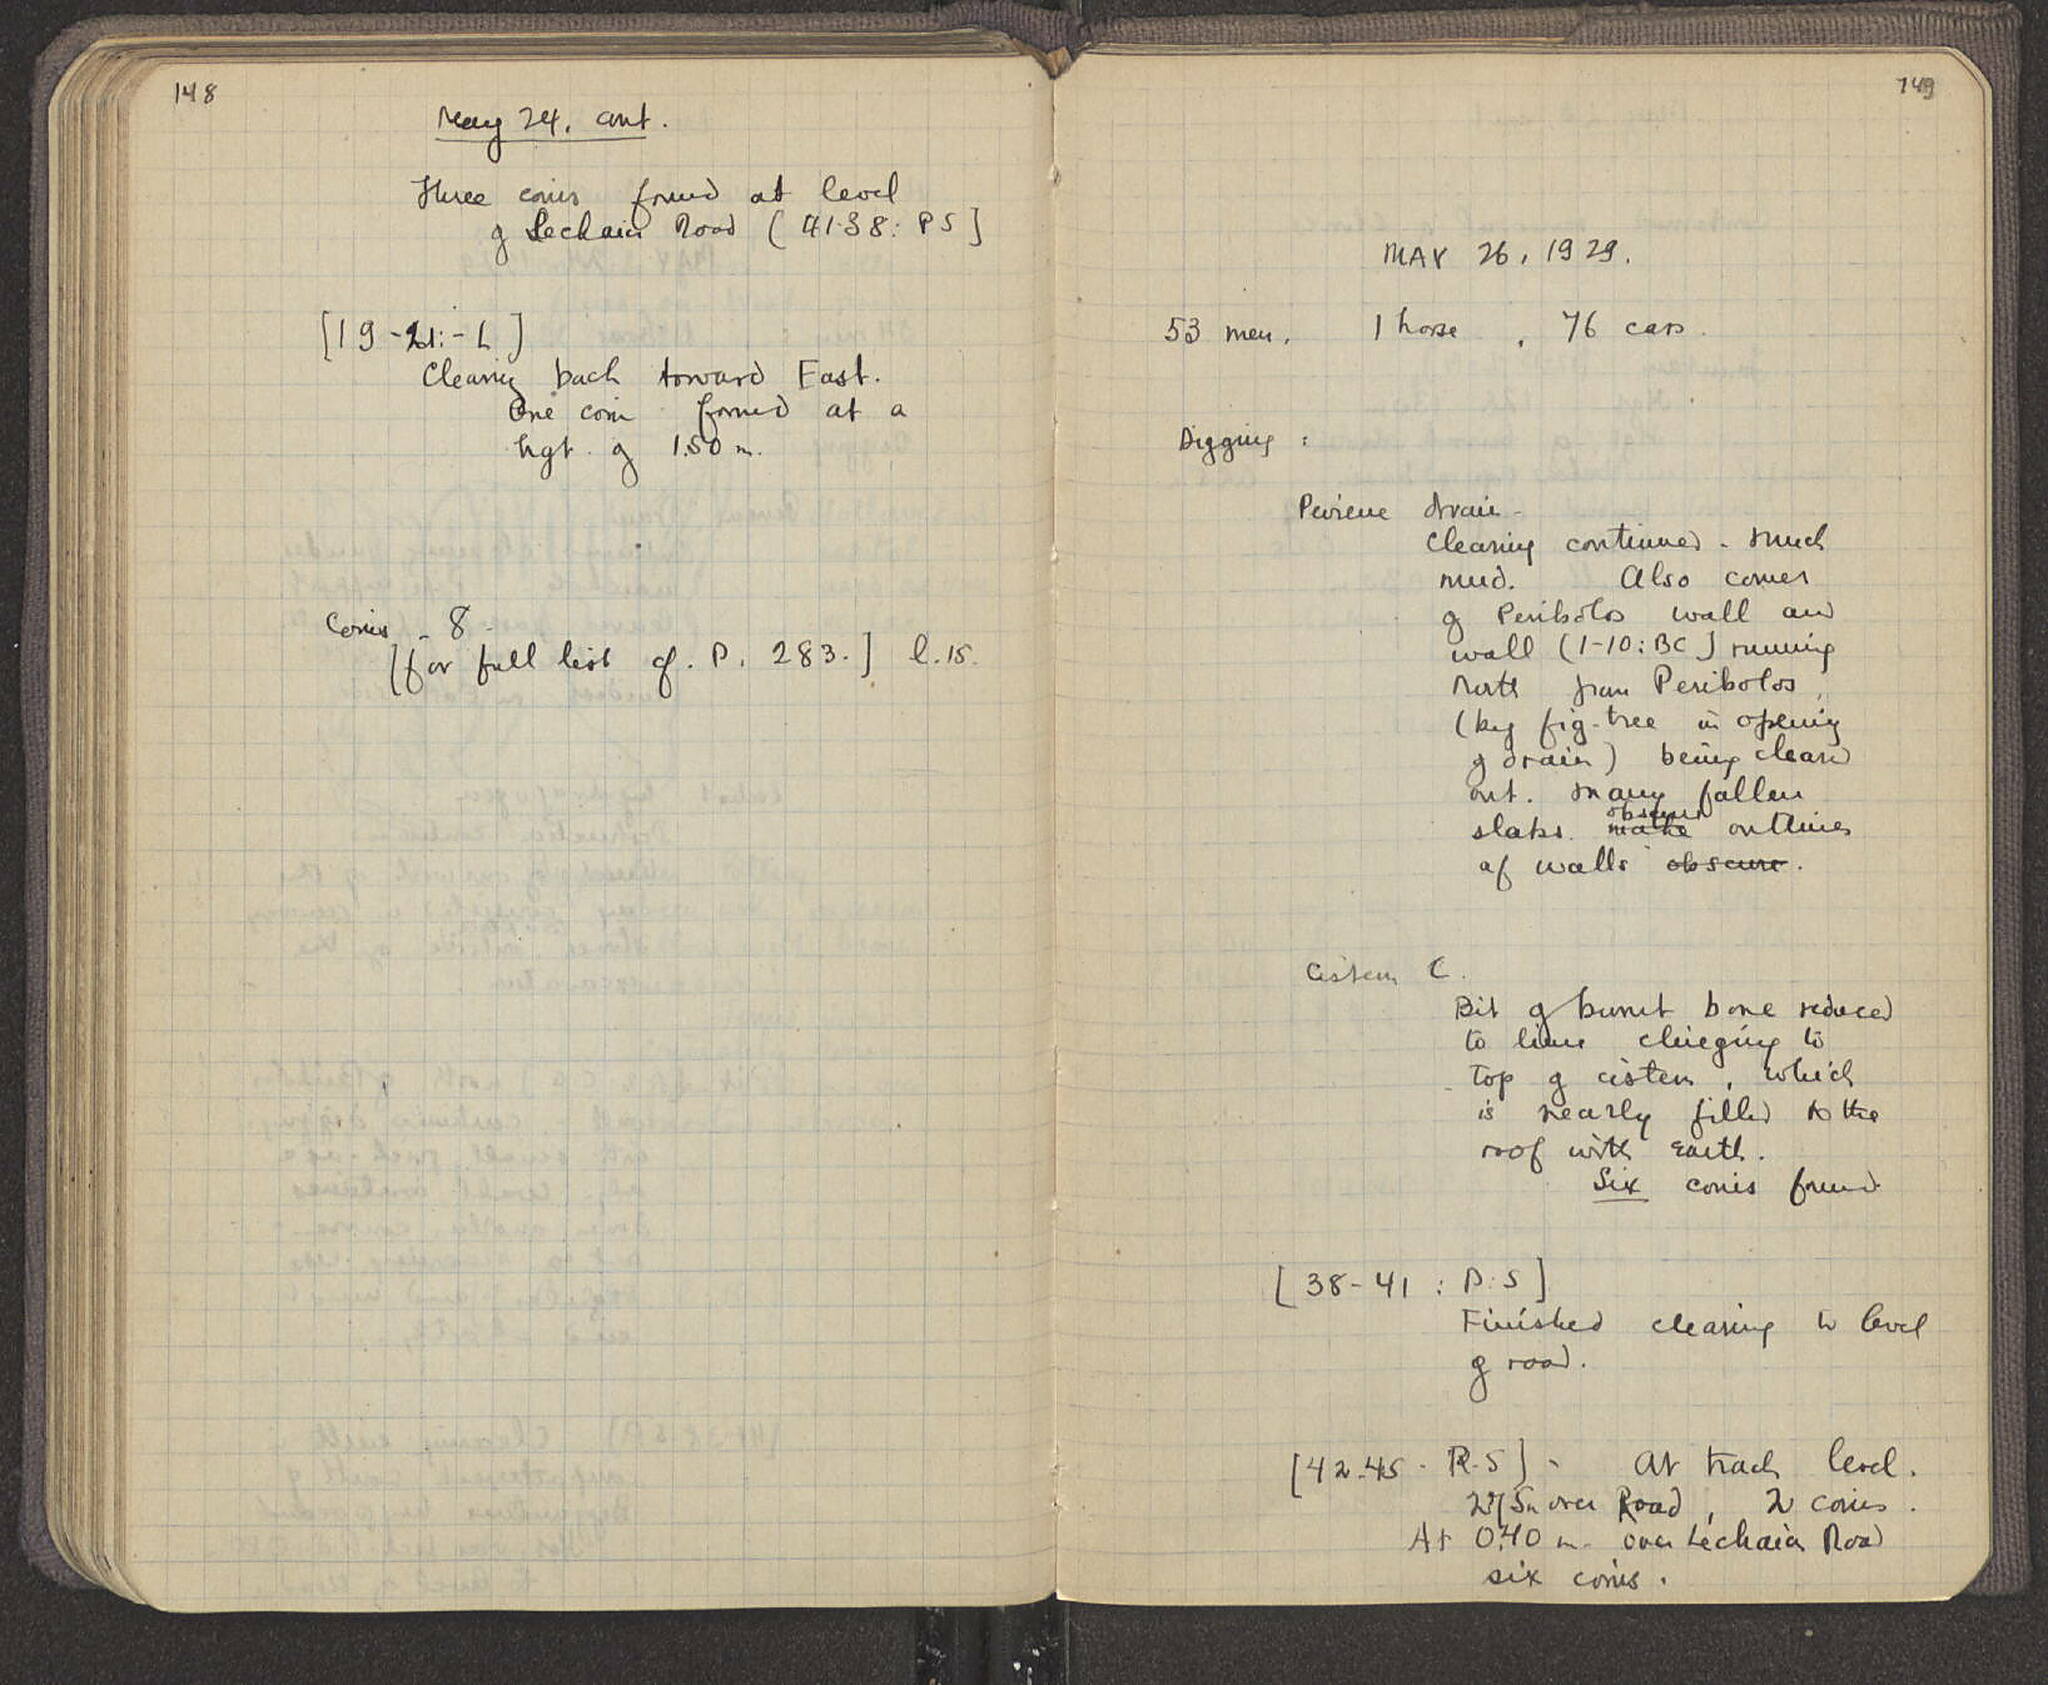 148
May 24, cont.
Three coins found at level
of Lechaion Road (41-38: PS]
[19-21:-L]
Clearing back toward East.
One coin found at a
hgt. of 1.50 m.
Coins - 8 -
[for full list cf. P. 283.] l.15.
149
MAY 26, 1929.
53 men, 1 horse, 76 cars.
Digging:
Peirene drain -
Clearing continued - much
mud. Also corner
of Peribolos wall and
wall (1-10: BC] running
North from Peribolos,
(by fig-tree in opening
of drain) being cleared
out. Many fallen
obscure
slabs make outlines
of walls obscure.
Cistern C.
Bit of burnt bone reduced
to lime clinging to
top of cistern, which
is nearly filled to the
roof with earth.
Six coins found
[38-41: P:S]
Finished clearing to level
of road.
[42-45 - R-S] - At track level.
over Road, 2 coins.
At 0.40 m. over Lechaion Road
six coins.